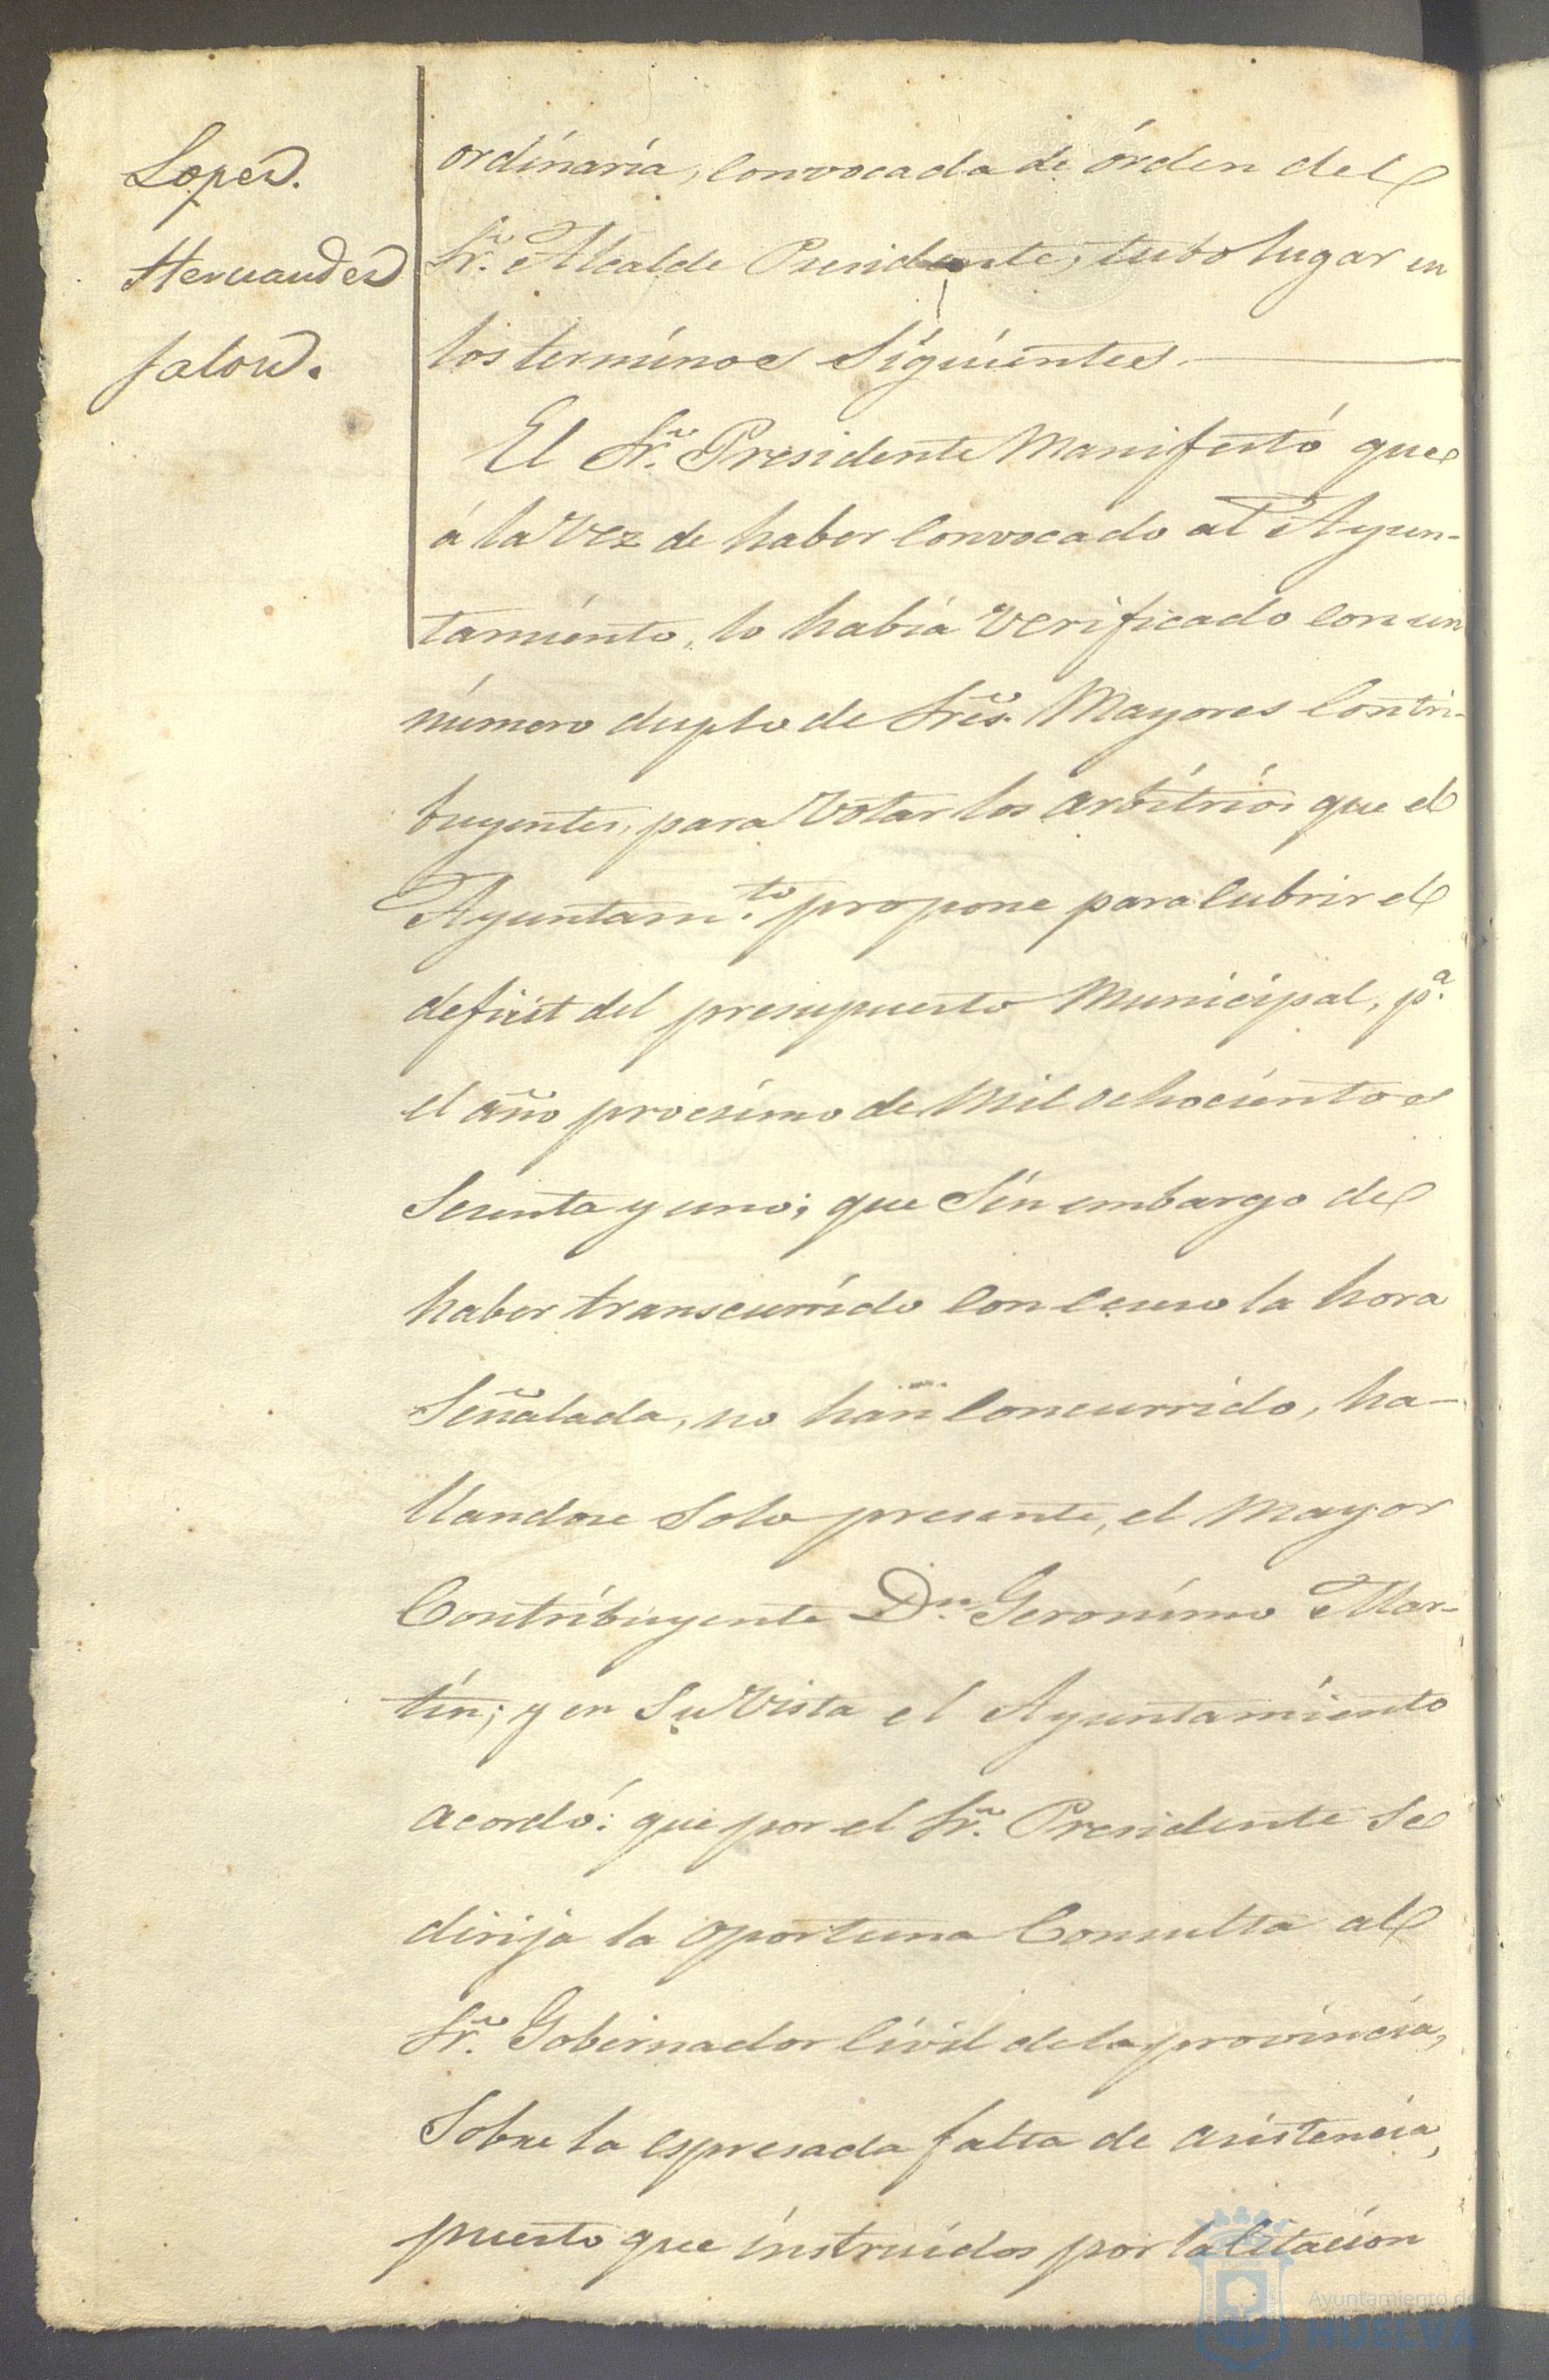 Lopez.
Hernandez
Jalon.
ordinaria, convocada de órden del
Sr. Alcalde Presidente, tubo lugar en
los terminos siguientes.
El Sr. Presidente manifestó que
á la vez de haber convocado al Ayun-
tamiento, lo habia verificado con un
número duplo de Sres. Mayores Contri-
buyentes, para votar los arbitrios que el
Ayuntam.to propone para cubrir el
deficit del presupuesto Municipal, p.a
el año procsimo de mil ochocientos
sesenta y uno; que sin embargo de
haber transcurrido con esceso la hora
señalada, no han concurrido, ha-
llandose solo presente, el mayor
Contribuyente Dn. Geronimo Mar-
tin; y en su vista el Ayuntamiento
acordó: que por el Sr. Presidente se
dirija la oportuna Consulta al
Sr. Gobernador Civil de la provincia,
sobre la espresada falta de asistencia,
puesto que instruidos por la citacion
Ayuntamiento de
HUELVA